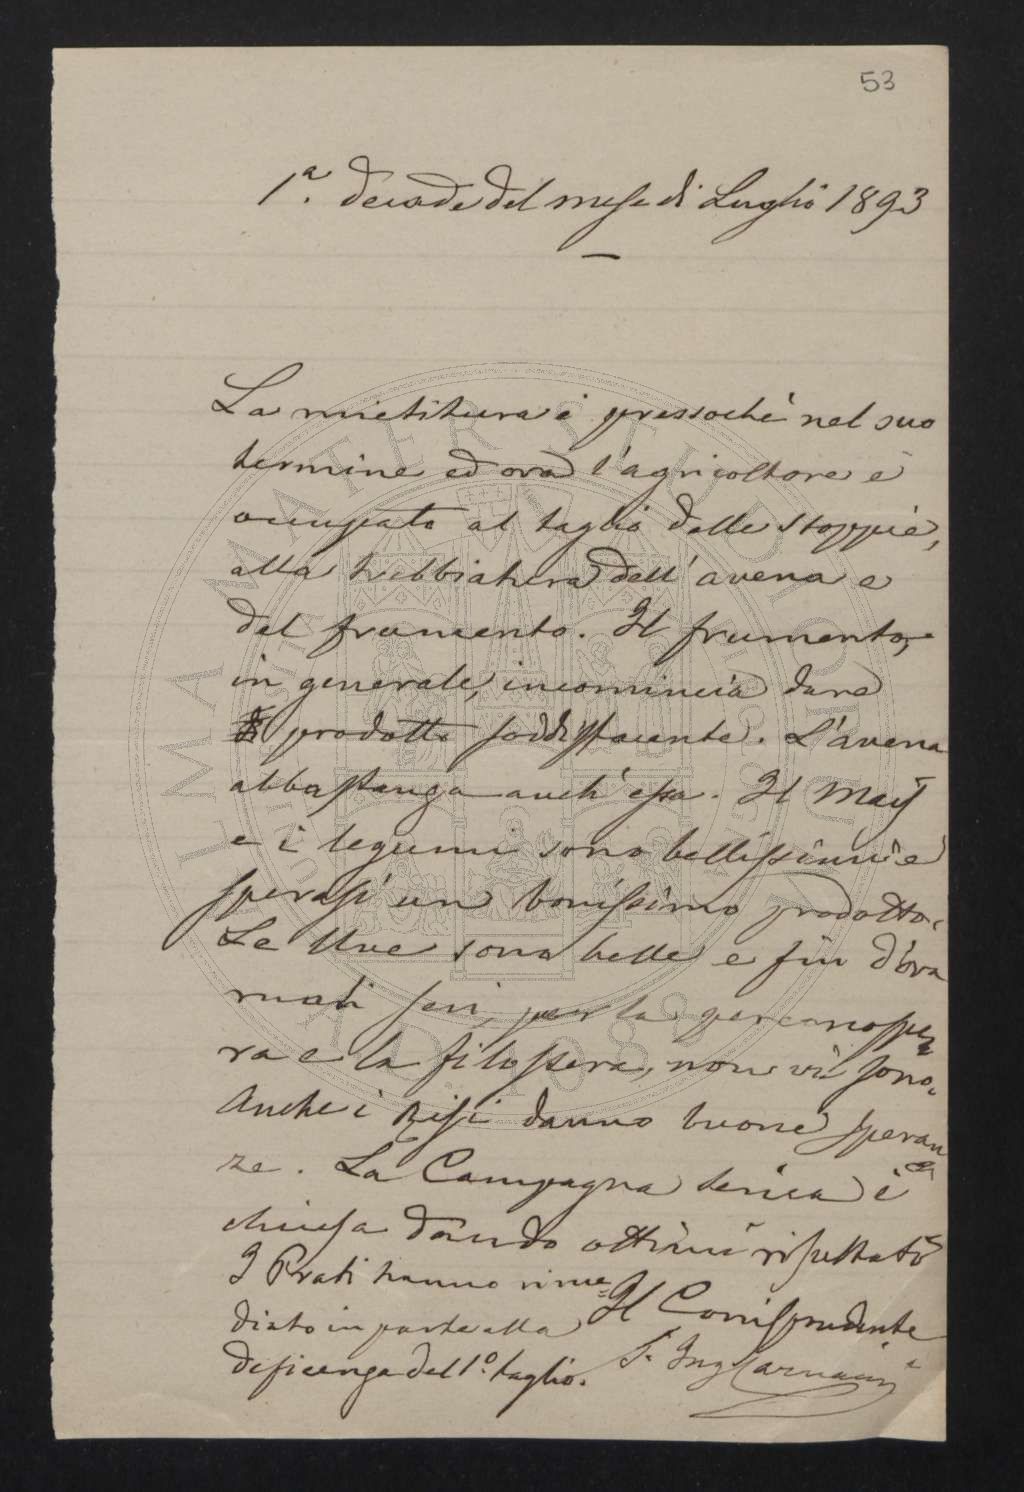 53
1.a decade del mese di Luglio 1893
La mietitura è pressochè nel suo
termine ed ora l'agricoltore è
occupato al taglio delle stoppie,
alla trebbiatura dell'avena e
del frumento. Il frumento,
in generale, incomincia dare
prodotto soddisfacente. L'avena
abbastanza anch'essa. Il Maiz
e i legumi sono bellissimi e
sperasi un bonissimo prodotto.
Le Uve sono belle e fin d'ora
mali seri, per la peronospe
ra e la filossera, non vi sono.
Anche i Risi danno buone speran
ze. La Campagna serica è
chiusa dando ottimi risultati
I Prati hanno rime=
diato in parte alla
deficenza del 1.o taglio.
Il Corrispondente
Ing
ALMA MATER STUDIORUM